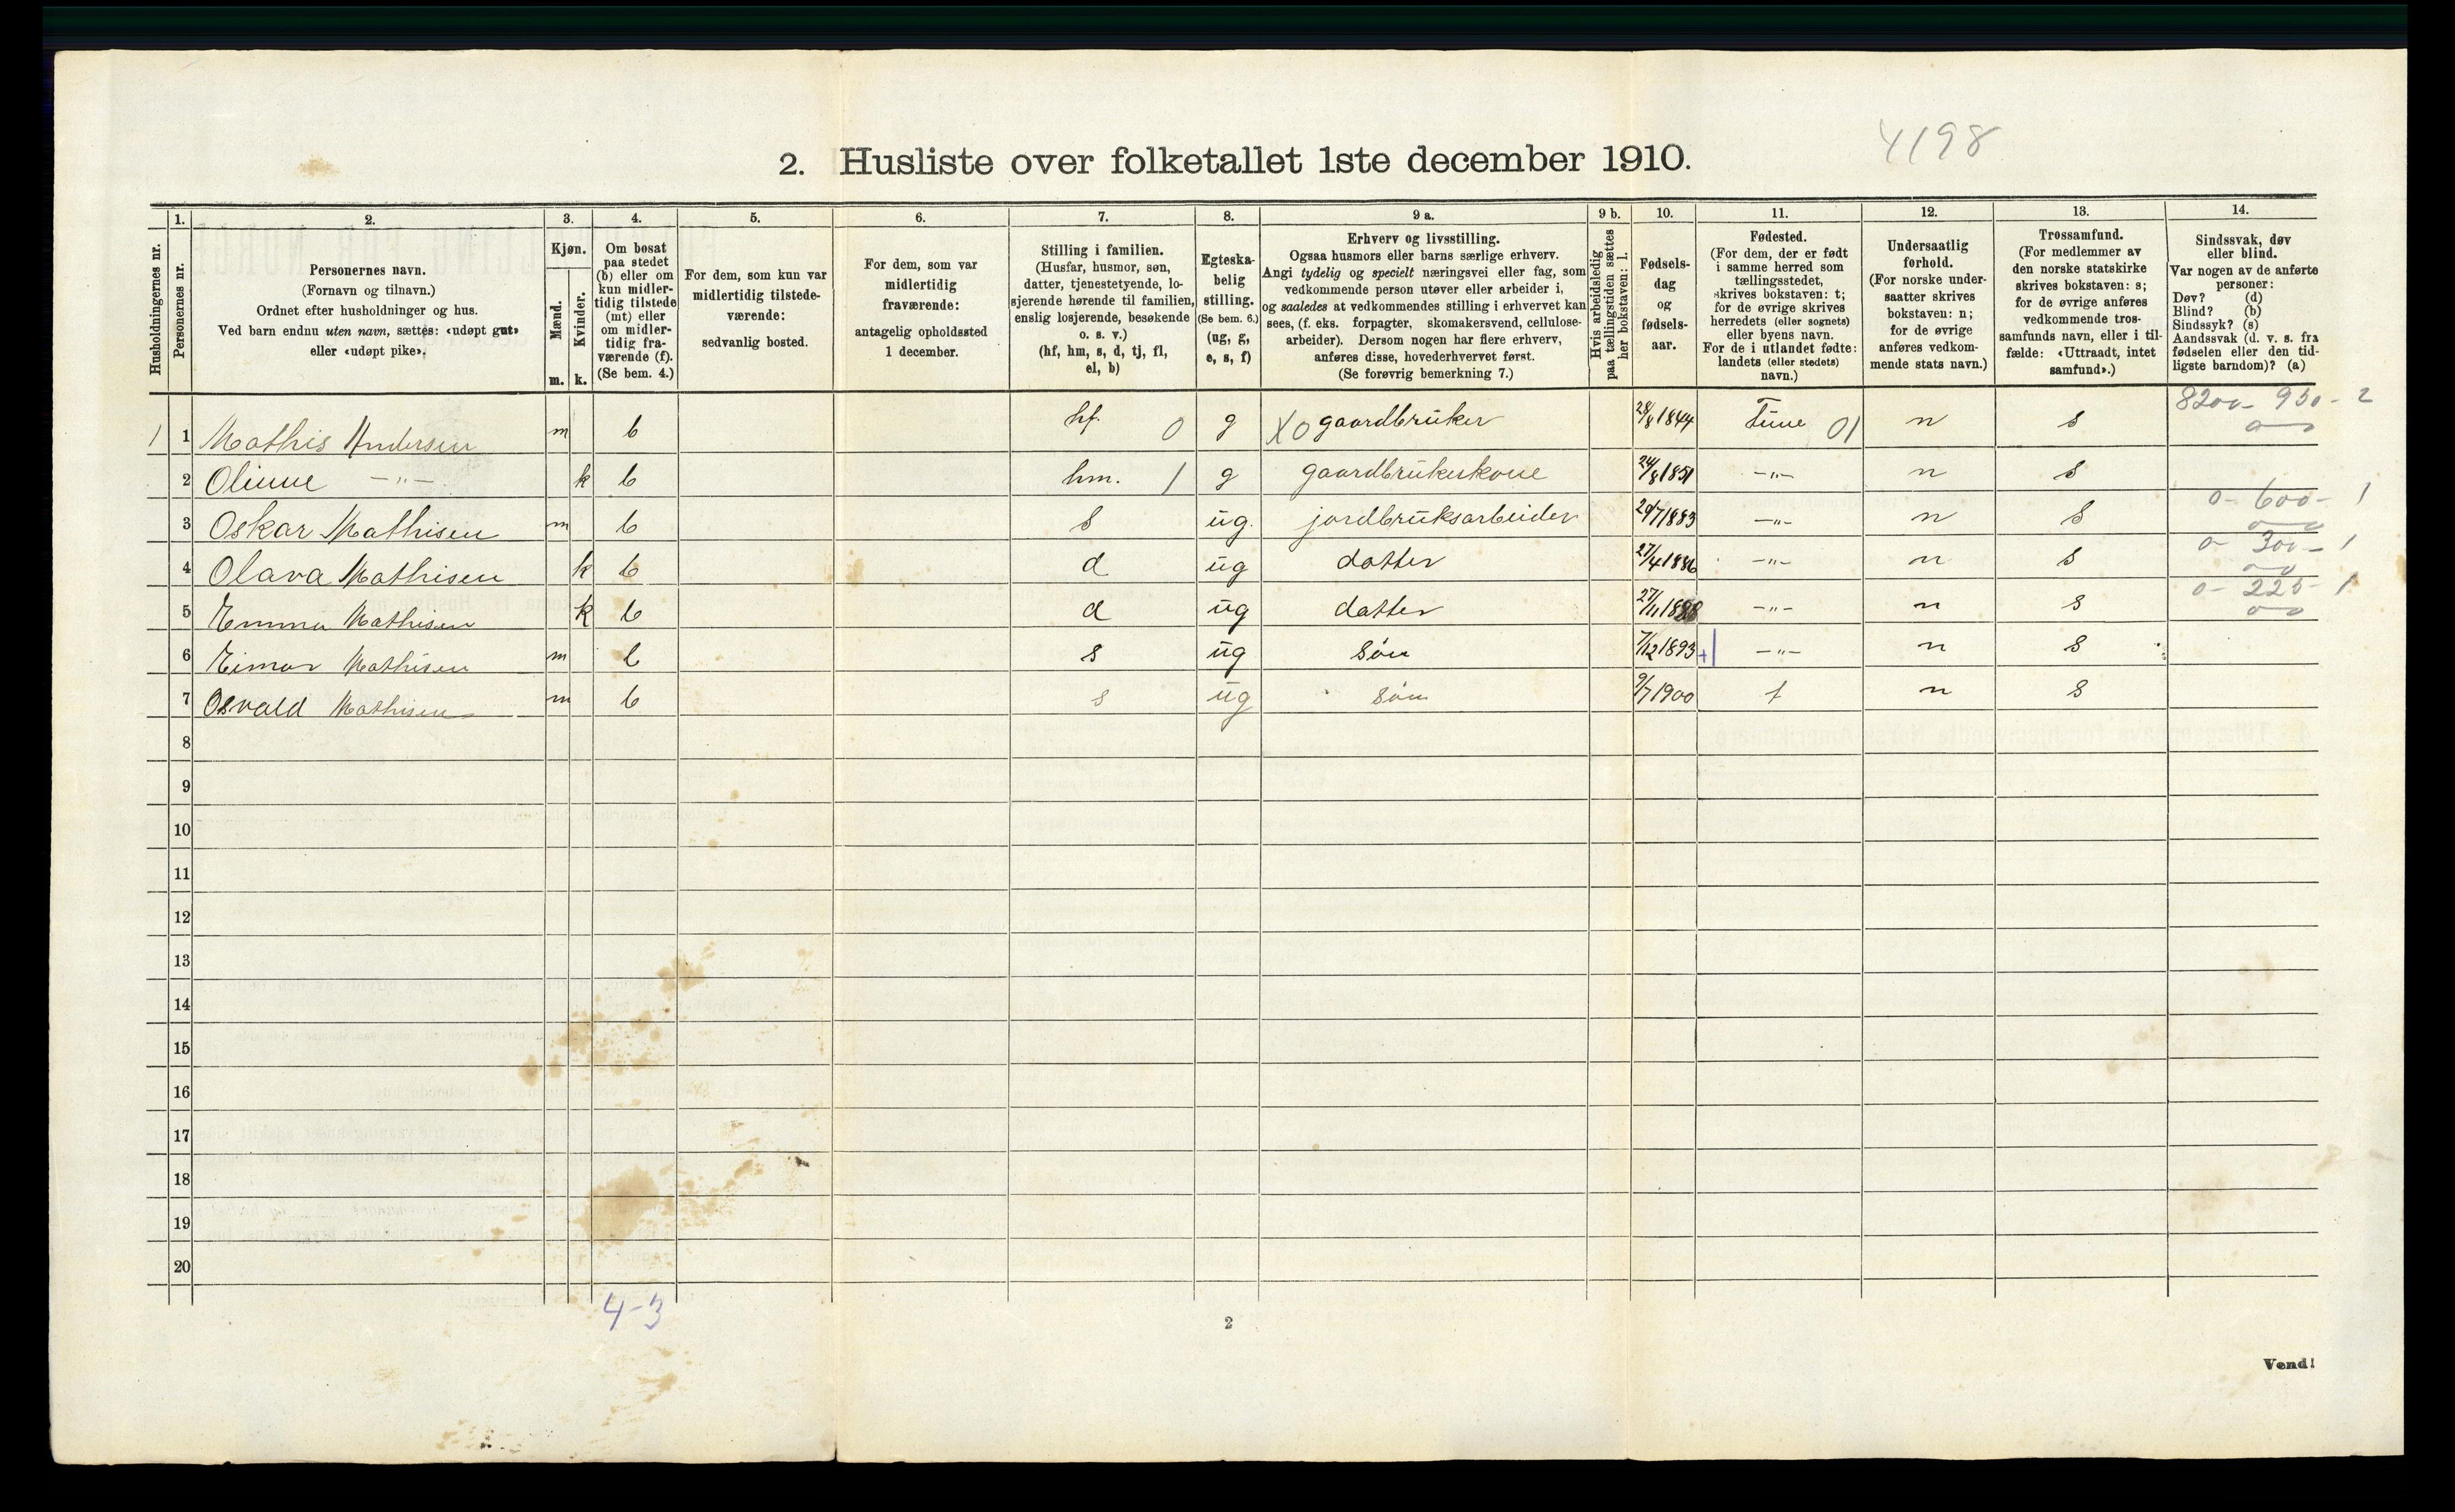 4198
2. Husliste over folketallet 1ste december 1910.
Husholdningernes nr.
1.
Personernes nr.
2.
Personernes navn.
(Fornavn og tilnavn.)
Ordnet efter husholdninger og hus.
Ved barn endnu uten navn, sættes: «udøpt gut»
eller «udøpt pike».
3.
Kjøn.
Mænd.
Kvinder.
m. k.
4.
Om bosat
paa stedet
(b) eller om
kun midler-
tidig tilstede
(mt) eller
om midler-
tidig fra-
værende (f).
(Se bem. 4.)
5.
For dem, som kun var
midlertidig tilstede-
værende:
sedvanlig bosted.
6.
For dem, som var
midlertidig
fraværende:
antagelig opholdssted
1 december.
7.
Stilling i familien.
(Husfar, husmor, søn,
datter, tjenestetyende, lo-
sjerende hørende til familien,
enslig losjerende, besøkende
o. s. v.)
(hf, hm, s, d, tj, fl,
el, b)
8.
Egteska-
belig
stilling.
(Se bem. 6.)
(ug, g,
e, s, f)
9 a.
Erhverv og livsstilling.
Ogsaa husmors eller barns særlige erhverv.
Angi tydelig og specielt næringsvei eller fag, som
vedkommende person utøver eller arbeider i,
og saaledes at vedkommendes stilling i erhvervet kan
sees, (f. eks. forpagter, skomakersvend, cellulose-
arbeider). Dersom nogen har flere erhverv,
anføres disse, hovederhvervet først.
(Se forøvrig bemerkning 7.)
9 b.
Hvis arbeidsledig
paa tællingstiden sættes
her bokstaven: l.
10.
Fødsels-
dag
og
fødsels-
aar.
11.
Fødested.
(For dem, der er født
i samme herred som
tællingsstedet,
skrives bokstaven: t;
for de øvrige skrives
herredets (eller sognets)
eller byens navn.
For de i utlandet fødte:
landets (eller stedets)
navn.)
12.
Undersaatlig
forhold.
(For norske under-
saatter skrives
bokstaven: n;
for de øvrige
anføres vedkom-
mende stats navn.)
13.
Trossamfund.
(For medlemmer av
den norske statskirke
skrives bokstaven: s;
for de øvrige anføres
vedkommende tros-
samfunds navn, eller i til-
fælde: «Uttraadt, intet
samfund».)
14.
Sindssvak, døv
eller blind.
Var nogen av de anførte
personer:
Døv? (d)
Blind? (b)
Sindssyk? (s)
Aandssvak (d. v. s. fra
fødselen eller den tid-
ligste barndom)? (a)
1 1 Mathis Andersen m b hf. 0 g X0 gaardbruker 28/8 1844 Tune 01 n s 8200- 950- 2
2 Oliune -"- k b hm. 1 g gaardbrukerkone 24/8 1851 -"- n s
3 Oskar Mathisen m b s ug. jordbruksarbeider 29/7 1883 -"- n s 0- 600- 1
4 Olava Mathisen k b d ug datter 27/4 1886 -"- n s 0- 300- 1
5 Emma Mathisen k b d ug datter 27/11 1888 -"- n s 0- 225- 1
6 Eimar Mathisen m b s ug søn 7/12 1893 +| -"- n s
7 Osvald Mathisen m b s ug søn 9/7 1900 t n s
8
9
10
11
12
13
14
15
16
17
18
19
20
4-3
2
Vend!